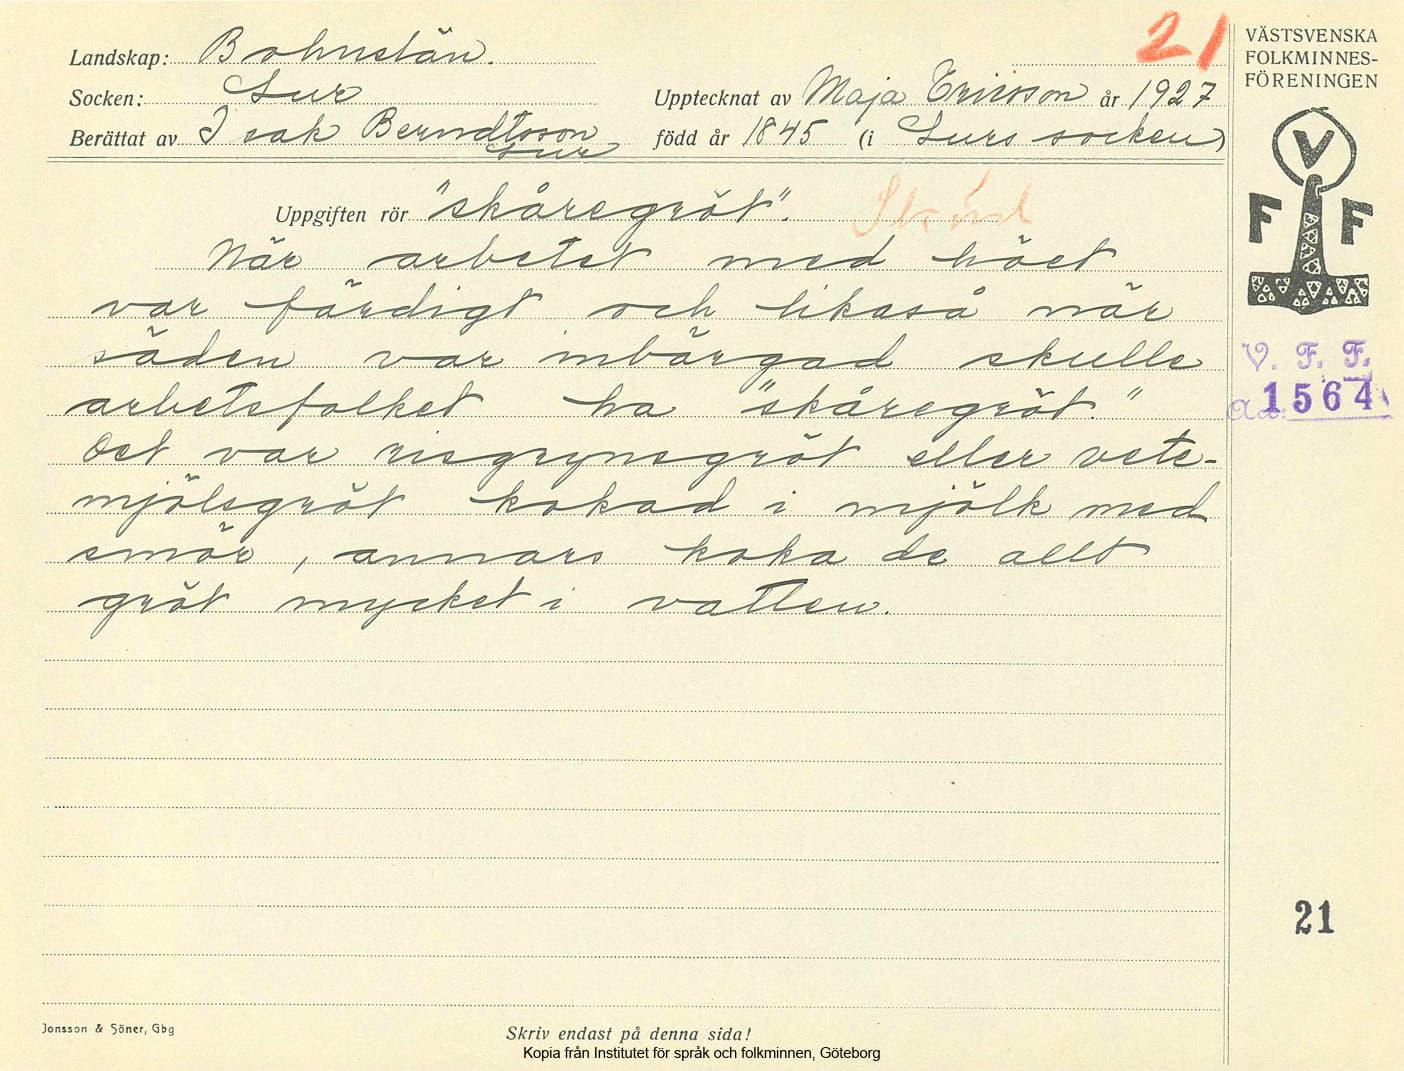 21
VÄSTSVENSKA
FOLKMINNES-
FÖRENINGEN
Landskap: Bohuslän.
Socken: Lur
Upptecknat av Maja Ericsson år 1927
Berättat av Isak Berndtsson
Lur
född år 1845 (i Lurs socken)
Uppgiften rör "skåregröt". Skörd
När arbetet med höet
var färdigt och likaså när
säden var inbärgad skulle
arbetsfolket ha "skåregröt."
Det var risgrynsgröt eller vete-
mjölsgröt kokad i mjölk med
smör, annars koka de allt
gröt mycket i vatten.
V
F F
V. F. F.
1564
21
Jonsson & Söner, Gbg
Skriv endast på denna sida!
Kopia från Institutet för språk och folkminnen, Göteborg